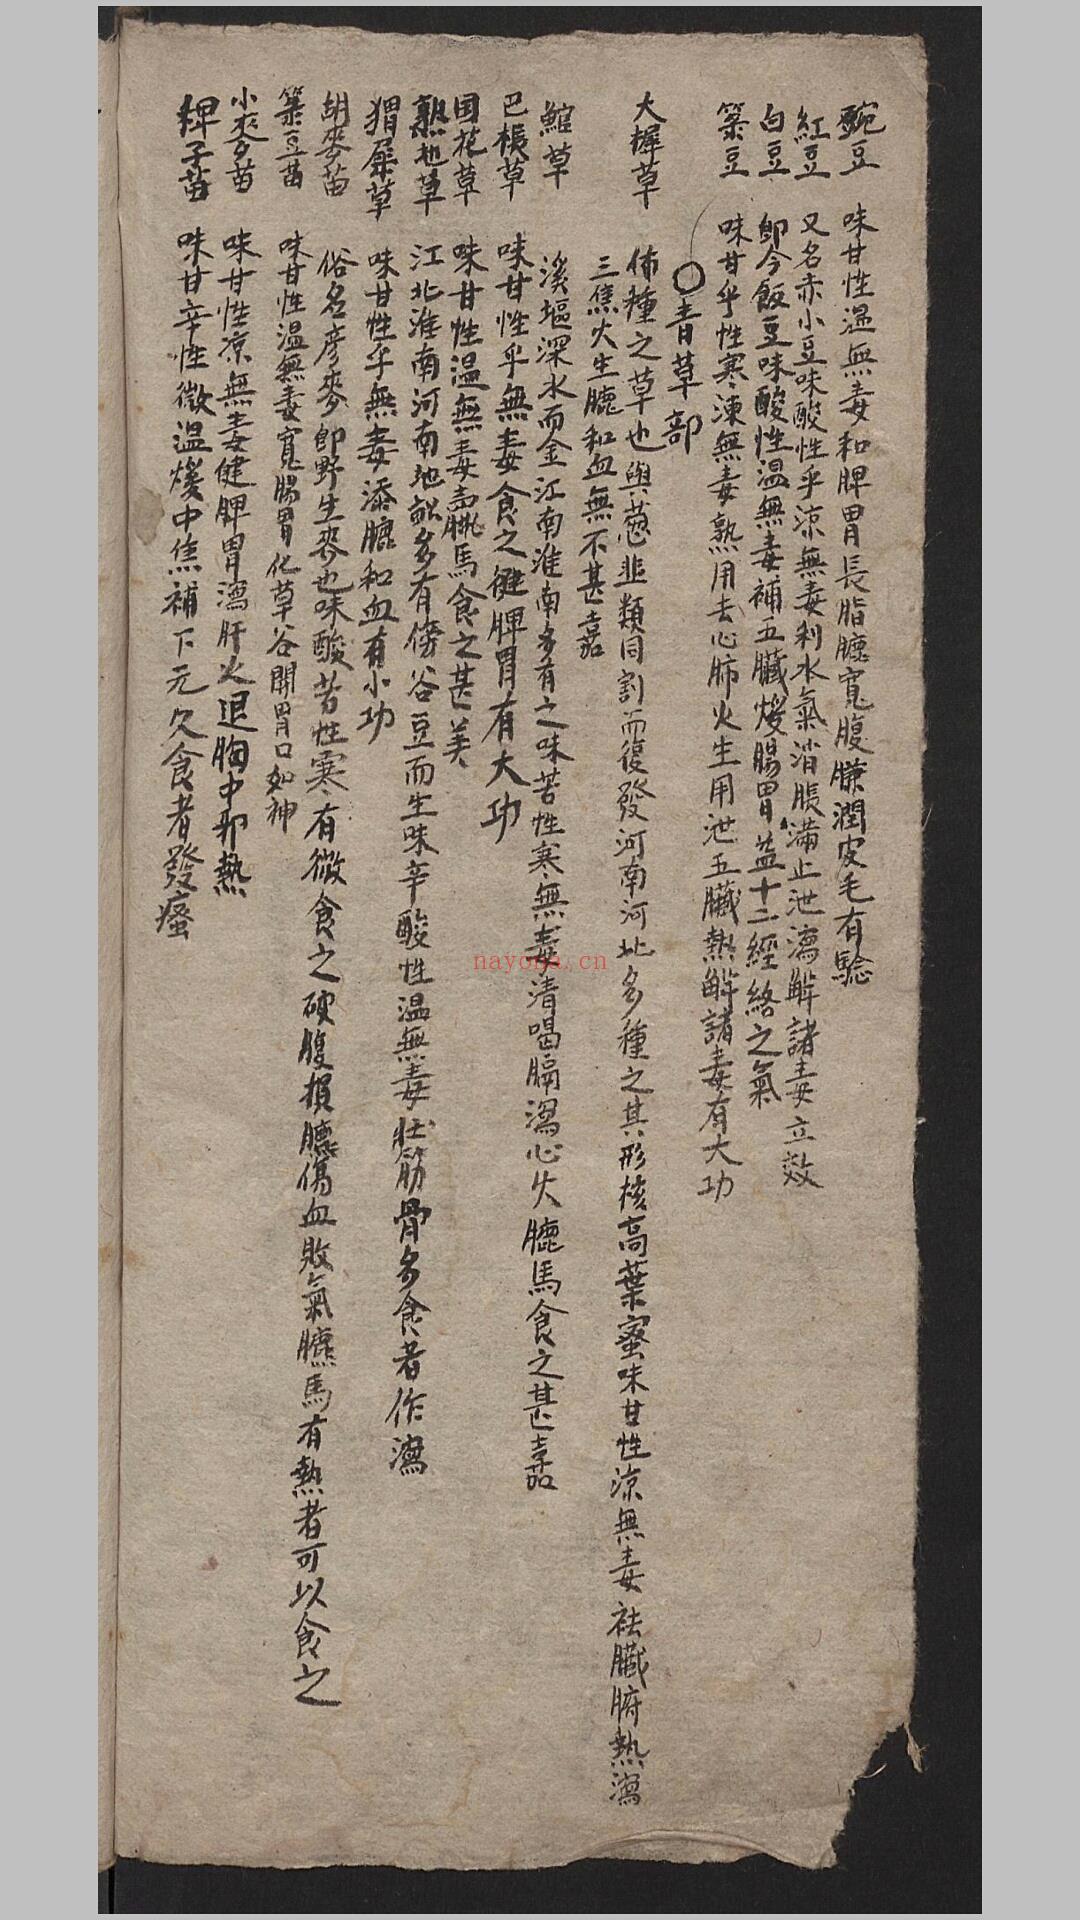 豌豆 味甘性溫無毒和脾胃長脂膘寬腹膁潤皮毛有騐
紅豆 又名赤小豆味酸性平涼無毒利水氣消脹滿止泄瀉解諸毒立效
白豆 即今飯豆味酸性温無毒補五臟煖腸胃益十二經絡之氣
菉豆 味甘平性寒凍無毒熟用去心肺火生用泄五臟熱解諸毒有大功
○青草部
大樨草 佈種之草也與葱韭類同割而復發河南河北多種之其形核高葉蜜味甘性涼無毒祛臟腑熱瀉
三焦火生膔和血無不甚嘉
草 溪塸深水而金江南淮南多有之味苦性寒無毒清喝膈瀉心火膔馬食之甚嘉
巴根草 味甘性平無毒食之健脾胃有大功
国花草 味甘性温無毒馬食之甚美
熟地草 江北淮南河南地多有傍谷豆而生味辛酸性温無毒壯筋骨多食者作瀉
犀草 味甘性平無毒添膔和血有小功
胡麥苗 俗名彦麥即野生麥也味酸苦性寒有微食之破腹損膘傷血敗氣膘馬有熱者可以食之
菉豆苗 味甘性温無毒寬腸胃化草谷開胃口如神
小麥苗 味甘性凉無毒健脾胃瀉肝火退胸中邪熱
稗子苗 味甘辛性微温煖中焦補下元久食者發瘙
nayona.cn